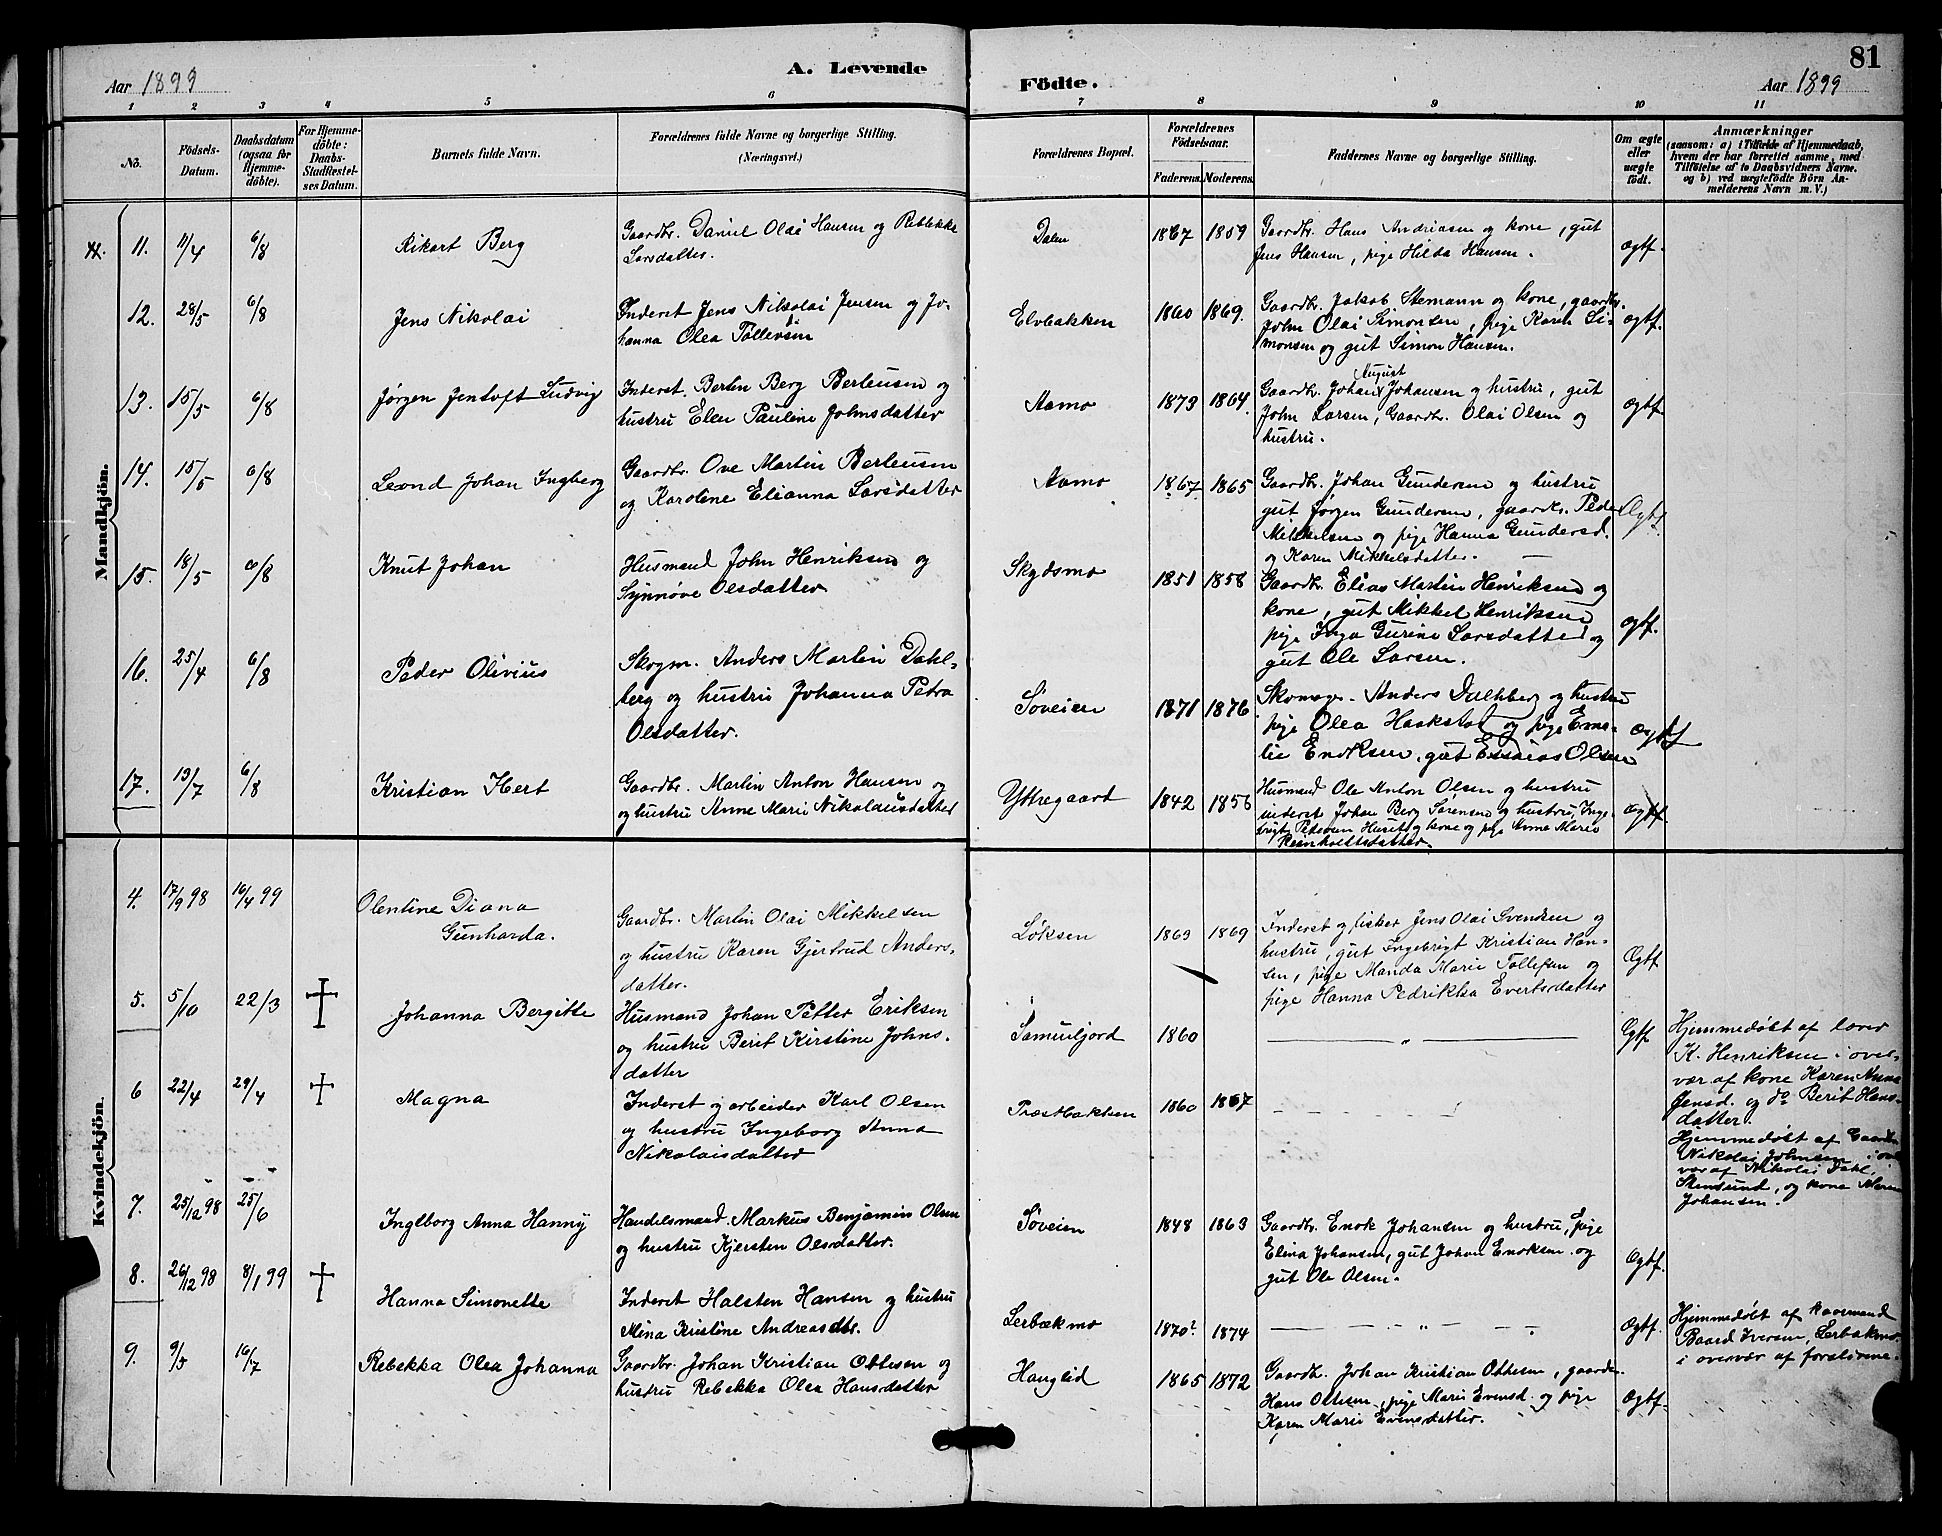 81
Aar 1899
A. Levende Födte.
Aar 1899
1 2 3 4 5 6 7 8 9 10 11
No.
Födsels-Datum.
Daabsdatum (ogsaa for Hjemme-döbte).
For Hjemme-döbte: Daabs-Stadfæstel-ses Datum.
Barnets fulde Navn.
Forældrenes fulde Navne og borgerlige Stilling.
(Næringsvei.)
Forældrenes Bopæl.
Forældrenes Födselsaar.
Faderens. Moderens.
Faddernes Navne og borgerlige Stilling.
Om ægte eller uægte födt.
Anmærkninger
(saasom: a) i Tilfælde af Hjemmedaab,
hvem der har forrettet samme, med
Tilföielse af to Daabsvidners Navne.
og b) ved uægtefödte Börn An-
melderens Navn m. V.)
Mandkjön.
11. 11/4 6/8 Rikart Berg
Gaardbr. Daniel Olai Hansen og Rebekka
Larsdatter.
Dalen 1867 1859
Gaardbr. Hans Andriasen og kone, gut
Jens Hansen, pige Hilda Hansen.
ægtf.
12. 28/5 6/8 Jens Nikolai
Inderst Jens Nikolai Jensen og Jo-
hanna Olea Tollevsen
Elvbakken 1860 1869.
Gaardbr. Jakob Stemann og kone, gaardbr.
John Olai Simonsen, pige Karen Si-
monsen og gut Simon Hansen.
ægtf.
13. 15/5 6/8 Jørgen Jentoft Ludvig
Inderst. Bertin Berg Berteusen og
hustru Elen Pauline Johnsdatter
Aamo 1873 1864
Gaardbr. Johan August Johansen og hustru, gut
John Larsen, Gaardbr. Olai Olsen og
hustru.
ægtf.
14. 15/5 6/8 Leond Johan Ingberg
Gaardbr. Ove Martin Berteusen
og Karoline Elianna Larsdatter
Aamo 1867 1865
Gaardbr. Johan Gundersen og hustru
gut Jørgen Gundersen, gaardbr. Peder
Mikkelsen og pige Hanna Gundersd.
og Karen Mikkelsdatter. —
Ægtf.
15. 18/5 6/8 Knut Johan
Husmand John Henriksen og
Synnøve Olsdatter
Skydsmo 1851 1858
Gaardbr. Elias Martin Henriksen og
kone, gut Mikkel Henriksen
pige Inga Gurine Larsdatter og
gut Ole Larsen.
ægtf.
16. 25/4 6/8 Peder Olivius
Skogm. Anders Martin Dahl-
berg og hustru Johanna Petra
Olsdatter.
Søveien 1871 1876
Skomager Anders Dalhberg og hustru
pige Olea Haakstad og pige Eme-
lie Enoksen, gut Essaias Olsen
ægtf
17. 13/7 6/8 Kristian Hert
Gaardbr. Martin Anton Hansen og
og hustru Anne Marie Nikolausdatter
Yttregaard 1842 1856
Husmand Ole Anton Olsen og hustru
inderst Johan Berg Sørensen og hustru, Inge-
brigt Pedersen og kone og pige Anne Marie
Reinholtsdatter.
ægtf.
Kvindekjön.
4. 17/9 98 16/4 99 Olentine Diana
Gunharda.
Gaardbr. Martin Olai Mikkelsen
og hustru Karen Gjertrud Anders-
datter.
Løksen 1869 1869
Inderst og fisker Jens Olai Svendsen og
hustru, gut Ingebrigt Kristian Han-
sen, pige Manda Marie Tollefsen og
pige Hanna Pedrikka Evertsdatter
Ægtf
5. 5/10 22/3 † Johanna Bergitte
Husmand Johan Petter Eriksen
og hustru Berit Kirstine Johns-
datter
1860
— " —
Ægtf
Hjemmedøbt af lærer
K. Henriksen i over-
vær af kone Karen Anna
Jensd. og do Berit Hans-
datter.
6 22/4 29/4 † Magna
Inderst og arbeider Karl Olsen
og hustru Ingeborg Anna
Nikolaisdatter
Præstbakken 1860 1867
Hjemmedøbt af Gaardbr.
Nikolai Johnsen i over
vær af Nikolai Dahl,
Stensund, og kone Maren
Johansen.
7. 25/12 98 25/6 Ingeborg Anna Hanny
Handelsmand. Markus Benjamin Olsen
og hustru Kjersten Olsdatter.
Søveien 1848 1863
Gaardbr. Enok Johansen og hustru, pige
Elina Johansen, gut Johan Enoksen og
gut Ole Olsen.
Ægtf.
8. 26/12 98 8/1 99 † Hanna Simonette
Inderst Halsten Hansen og hustru
Mina Kristine Andreasdtr.
Lerbækmo 1870? 1874
— " —
Ægtf.
Hjemmedøbt af kaarmand
Baard Iversen, Lerbækmo
i overvær af forældrene.
9. 9/5 16/7 Rebekka Olea Johanna
Gaardbr. Johan Kristian Ottesen og
hustru Rebekka Olea Hansdatter
Hanglid 1865 1872
Gaardbr. Johan Kristian Ottesen, gaardbr.
Hans Ottesen, pige Marie Evensd. og pige
Karen Marie Evensdatter.
Ægtf.